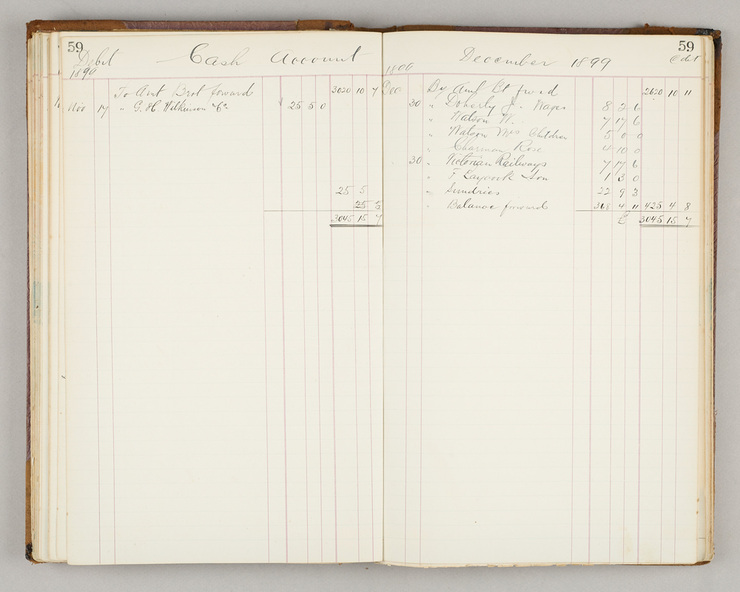 59
Debit Cash Account
1899
To Amt Brot forward 3020 10 7
Nov 17 " G. H. Wilkinson & Co 25 5 0
25 5
25 5
3045 15 7
December 1899 59
Cdt
1899
By Amt Bt fwd 2620 10 11
30 " Doherty J. Wages 8 2 6
" Watson W. 7 17 6
" Watson Mrs Children 5 0 0
" Charman Rose 4 10 0
30 " Victorian Railways 7 17 6
" T Laycock & Son 1 3 0
" Sundries 22 9 3
" Balance forward 368 4 11 425 4 8
£ 3045 15 7